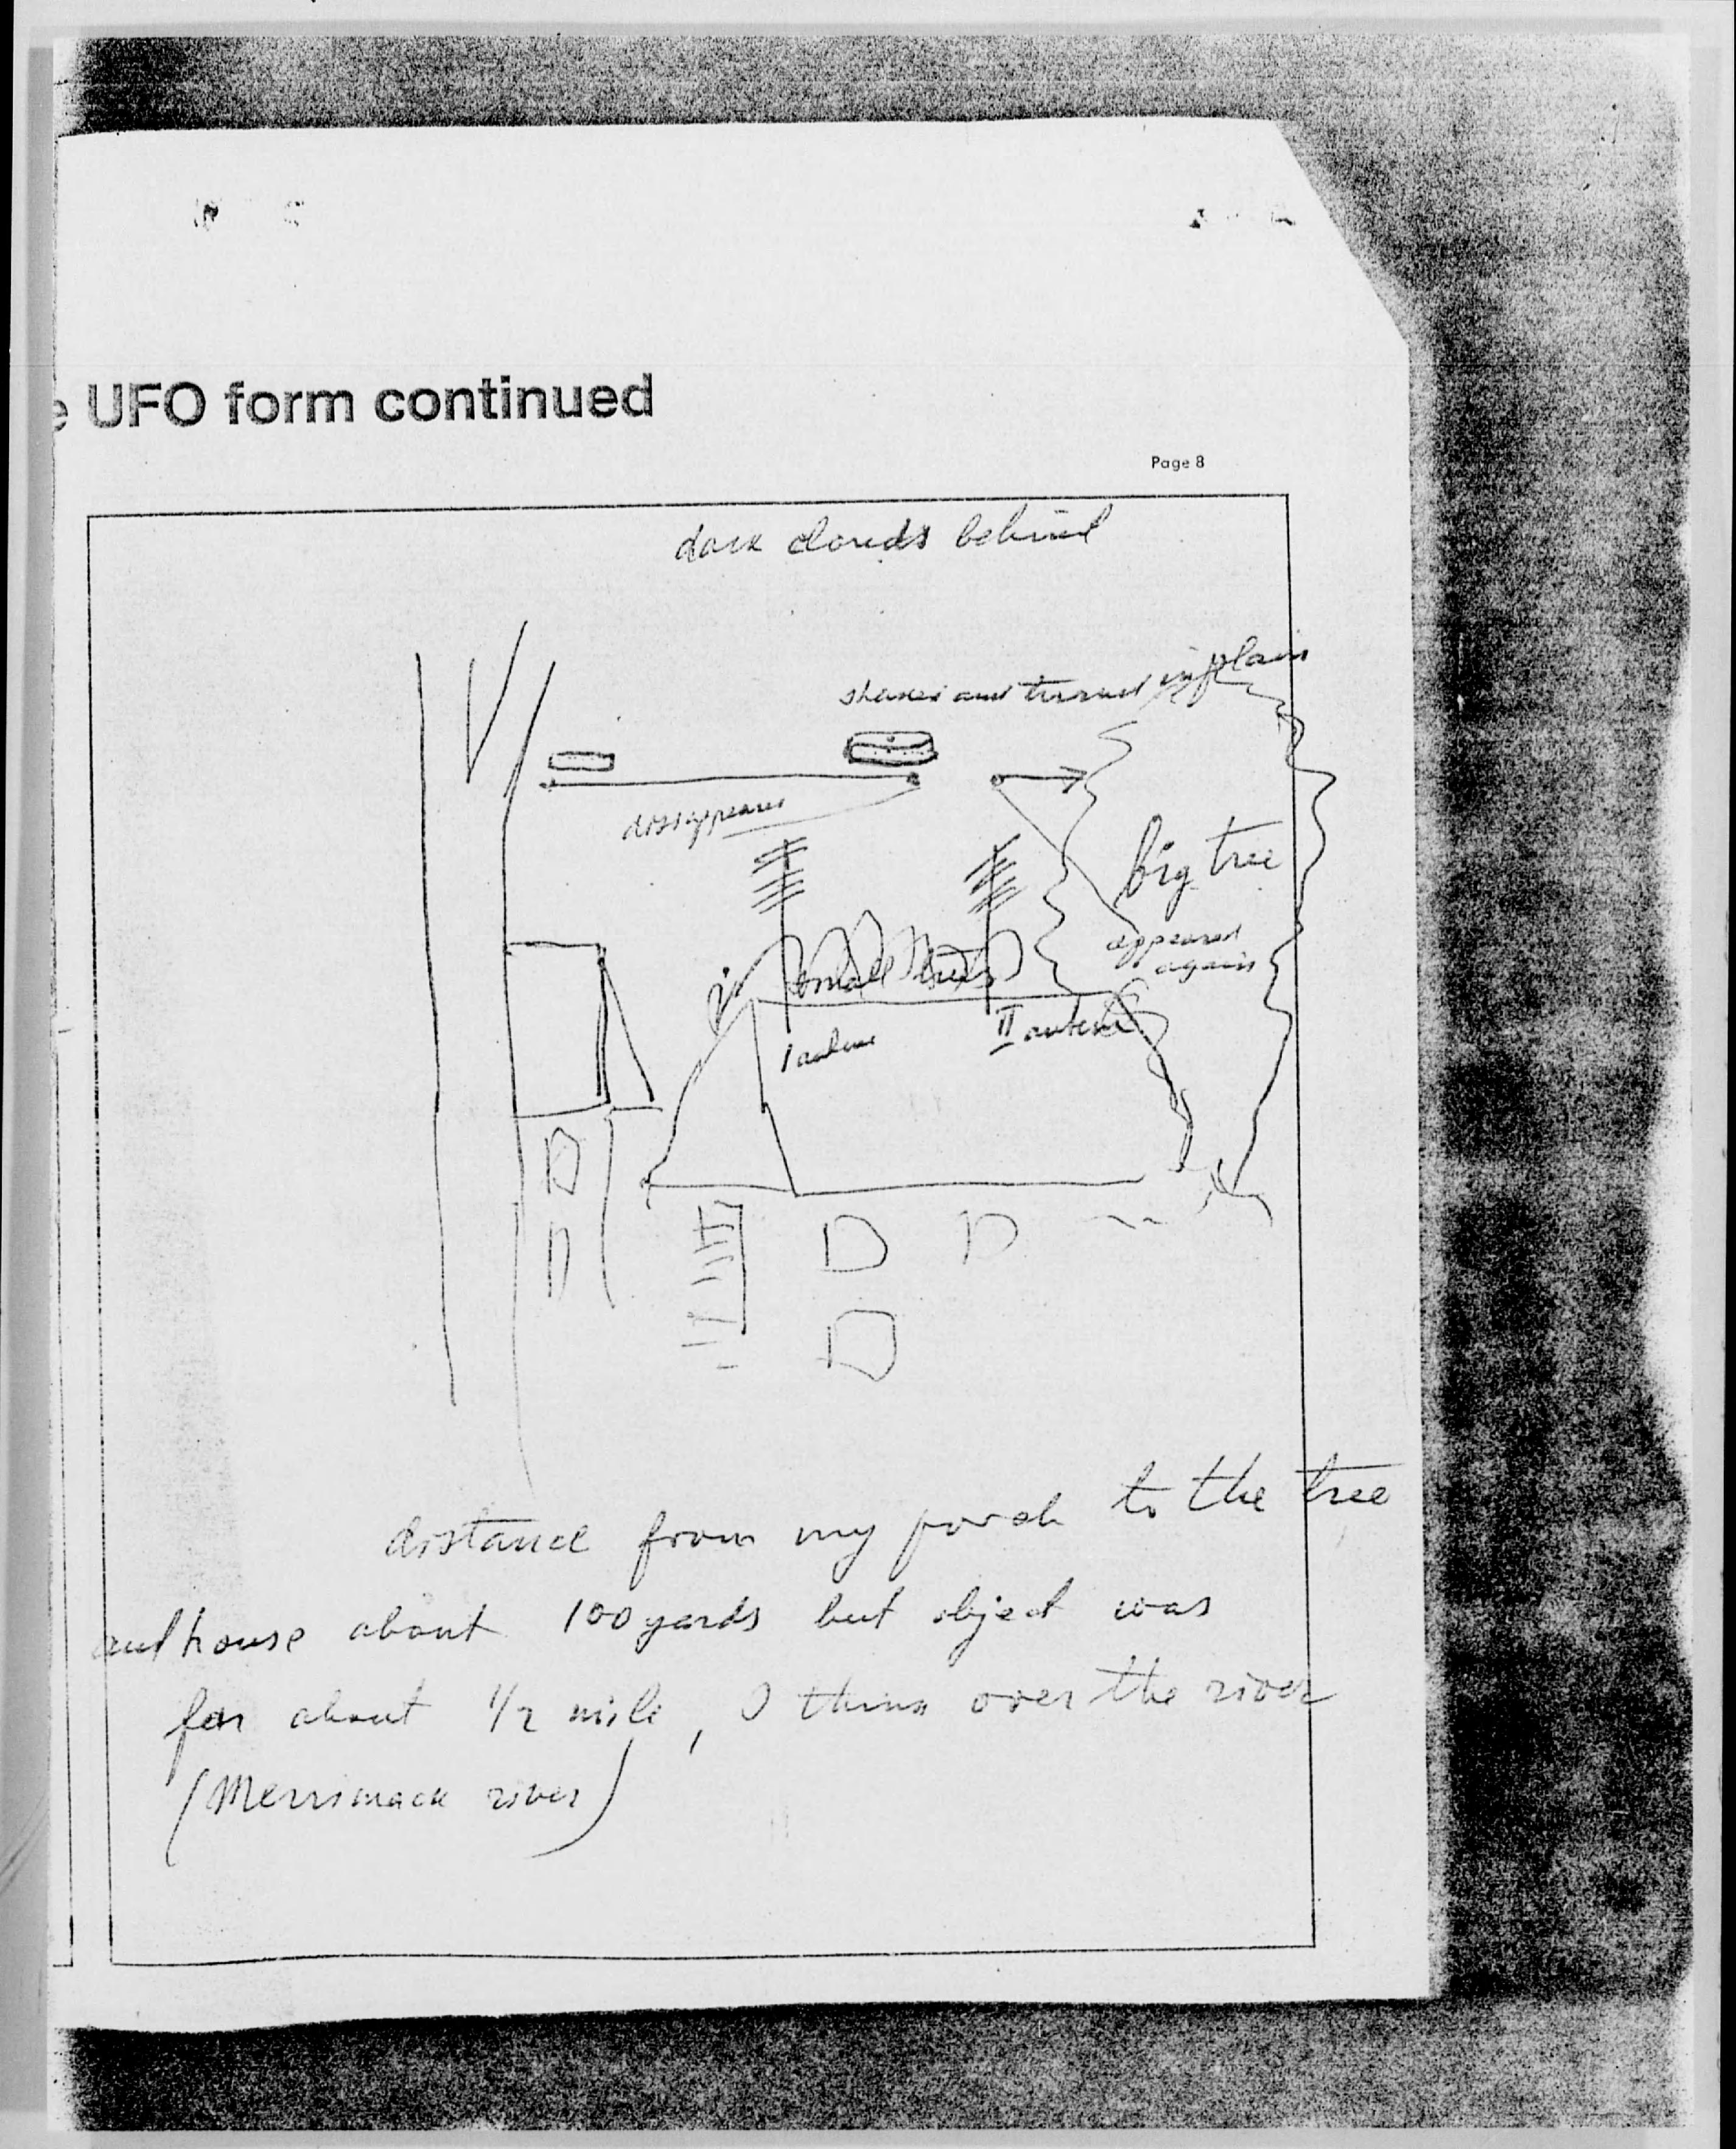 e UFO form continued
Page 8
dark clouds behind
in plain
and turned
dissappeared
big tree
appeared
again
small trees
I antene
II antene
distance from my porch to the tree
and house about 100 yards but object was
far about 1/2 mile, I think over the river
(Merrimack river)